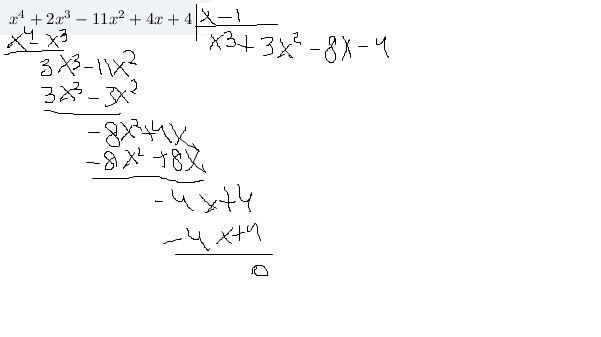 x⁴ + 2x³ − 11x² + 4x + 4 | x − 1
x⁴ − x³
x³ + 3x² − 8x − 4
3x³ − 11x²
3x³ − 3x²
−8x² + 4x
−8x² + 8x
−4x + 4
−4x + 4
0